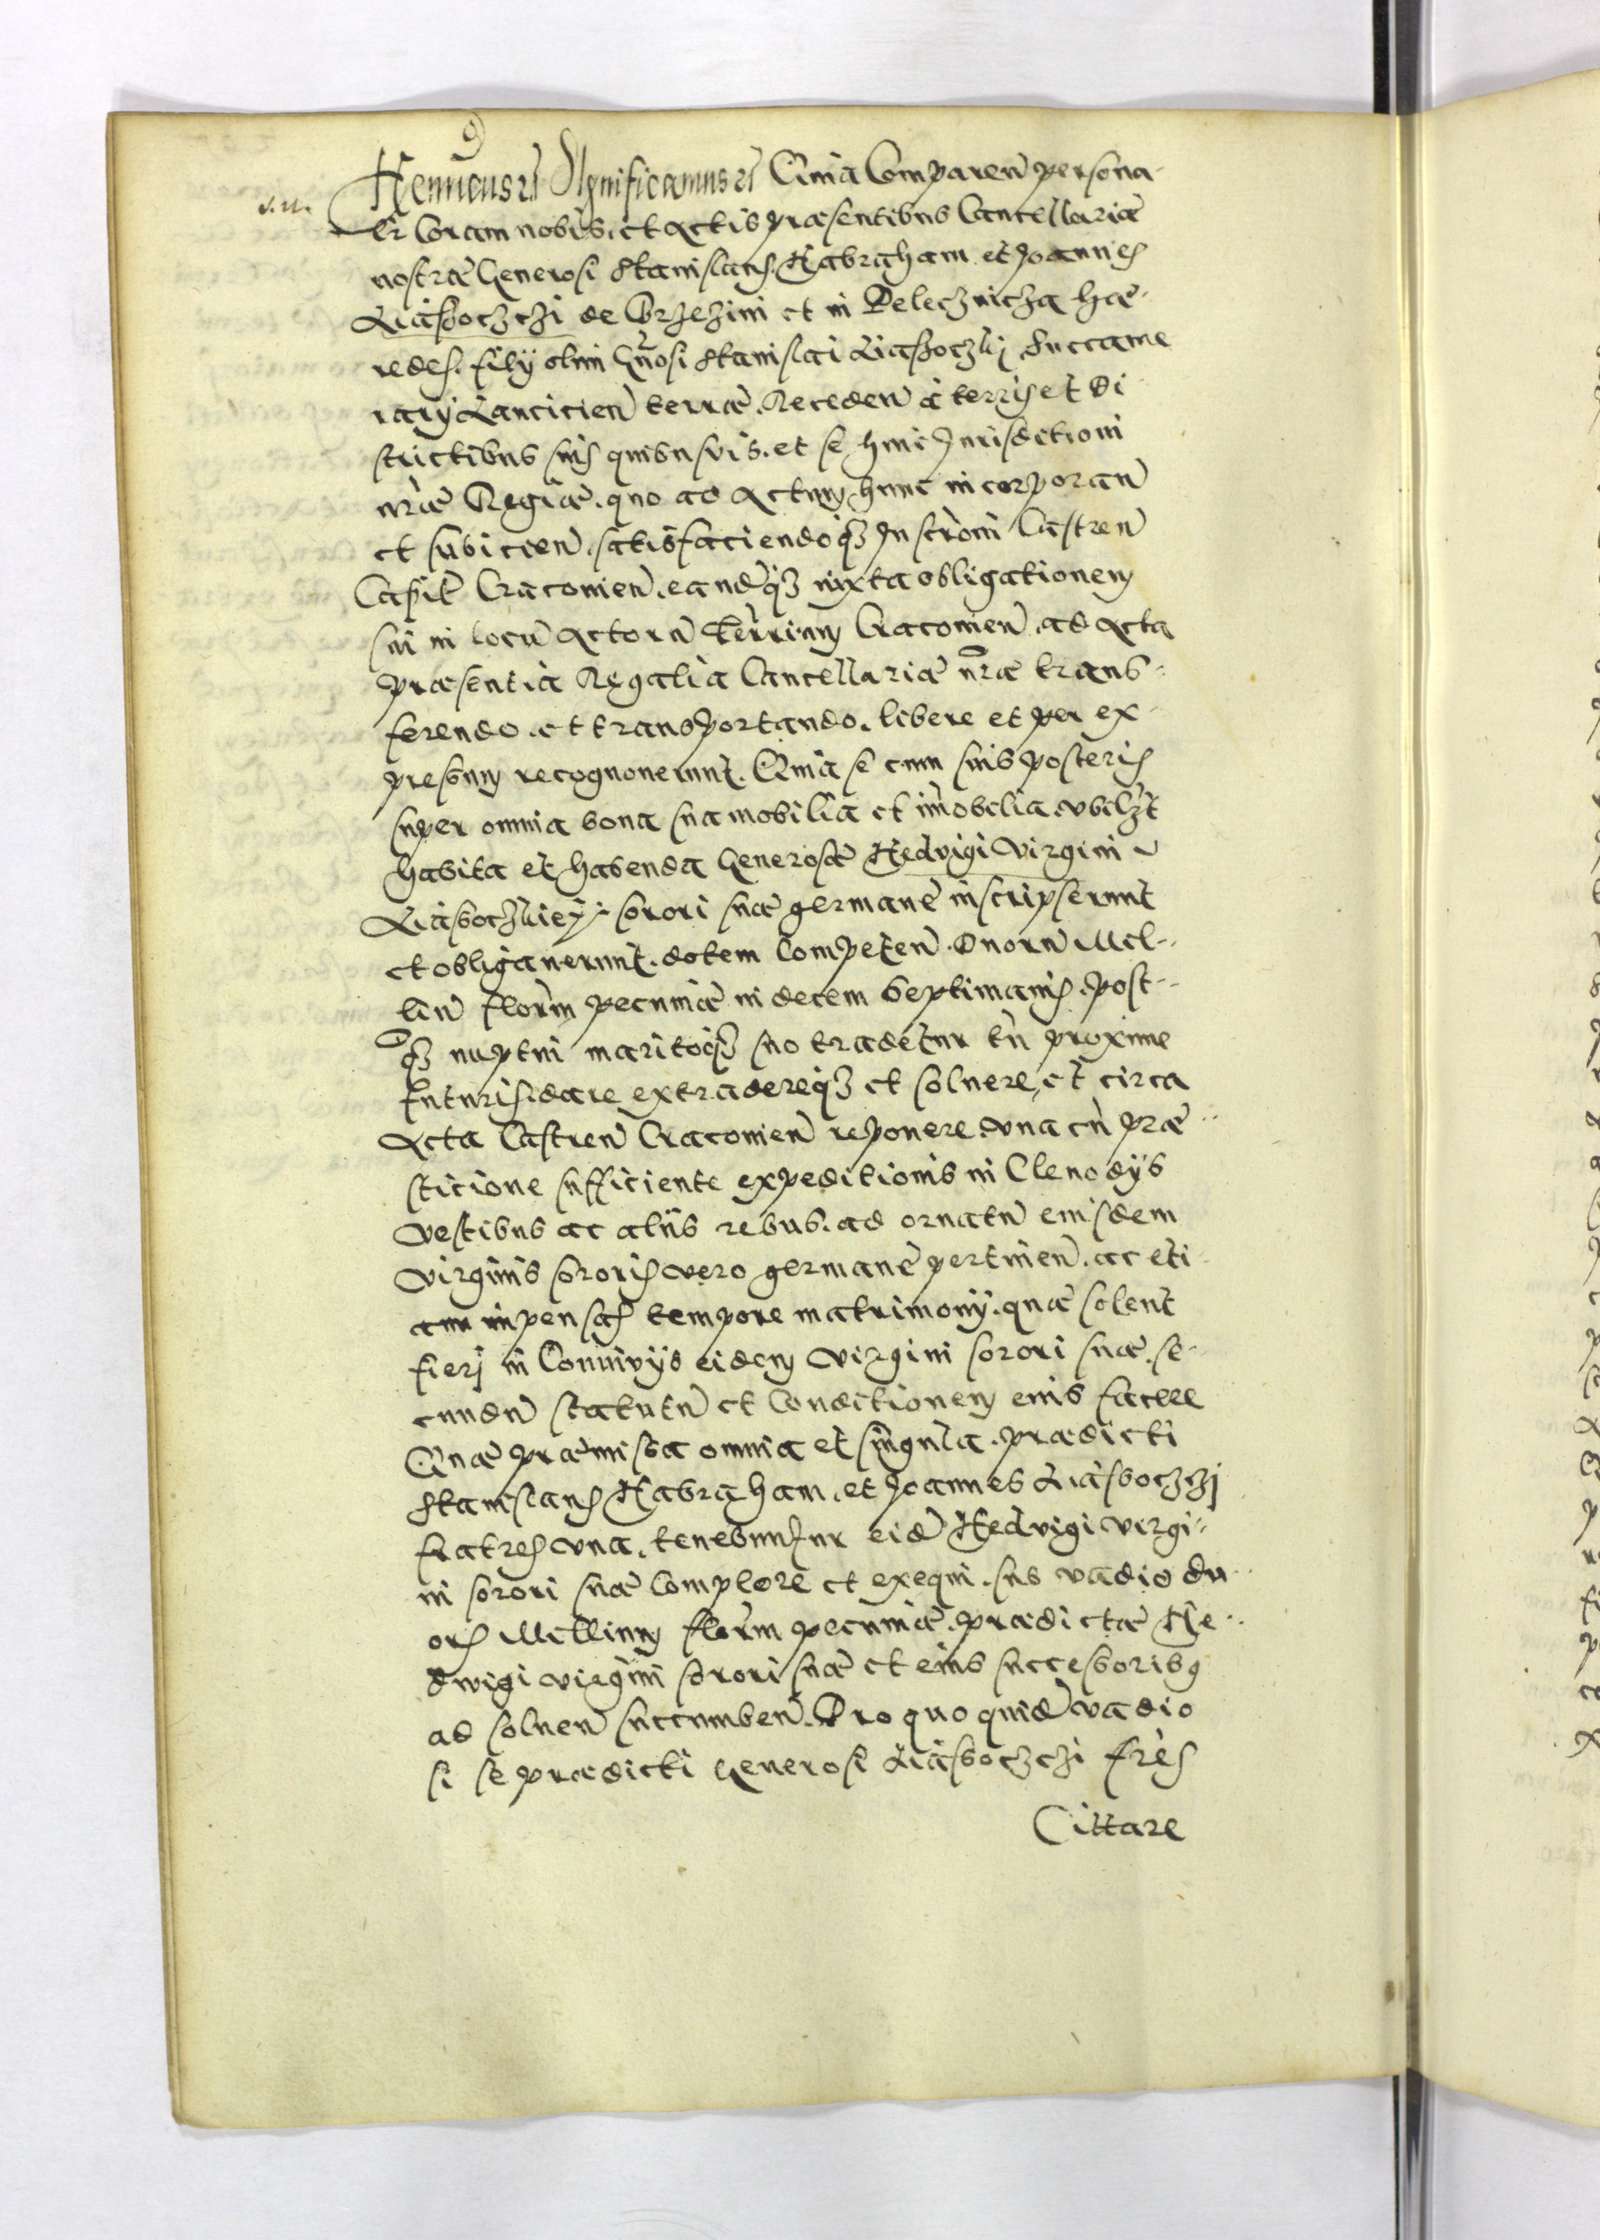 Henricus etc Significamus etc Quia Comparen persona-
lr Coram nobis. et Actis præsentibus Cancellariæ
nostræ Generosi Stanislaus. Habraham et Joannes
Liassoczczi de Brzezini et in Pelecznicza hæ-
redes. filij olim Gnosi Stanislai Liassoczkij Succame
rarij Lancicien terræ. Receden à terris et Di
strictibus suis quibusvis. et se huic Jurisdictioni
nræ Regiæ. quo ad Actum hunc incorporan
et subiicien. satisfaciendoq3 Inscroni Castren
Capit Cracovien. eandq3 iuxta obligationem
sui in locu Actoru Terrium Cracovien. ad Acta
præsentia Regalia Cancellariæ nræ trans-
ferendo. et transportando. libere et per ex-
pressum recognoverunt. Quia se cum suis posteris
super omnia bona sua mobilia et imobilia. vbilzt
habita et habenda Generosæ Hedvigi Virgini
Liassoczkiey sorori suæ germanæ inscripserunt
et obligaverunt. dotem Competen. Duoru Mil-
liu florm pecuniæ in decem Septimanis. post-
q3 nuptui maritoq3 suo tradetur tn proxime
futuris. dare extradereq3 et solvere, et circa
Acta Castren Cracovien reponere. vna cu præ-
sticione sufficiente expeditionis in Clenodijs
vestibus ac aliis rebus. ad ornatu eiusdem
virginis sororis vero germanæ pertinen. ac eti-
am inpensas tempore matrimonij. quæ solent
fierj in Conviujis eidem virgini sorori suæ. se-
cundu statutu et Conditionem eius facere
Quæ præmissa omnia et singula. prædicti
Stanislaus Habraham. et Joannes Liassoczczj
fratres vna. tenebuntur eid Hedvigi virgi-
ni sorori suæ Complere et exequi. sub vadio du-
oru Millium florm pecuniæ. prædictæ He-
dwigi virgini sorori suæ et eius successorib9
ad solven succumben. Pro quo quid vadio
si se prædicti Generosi Liassoczczi frès
Cittare